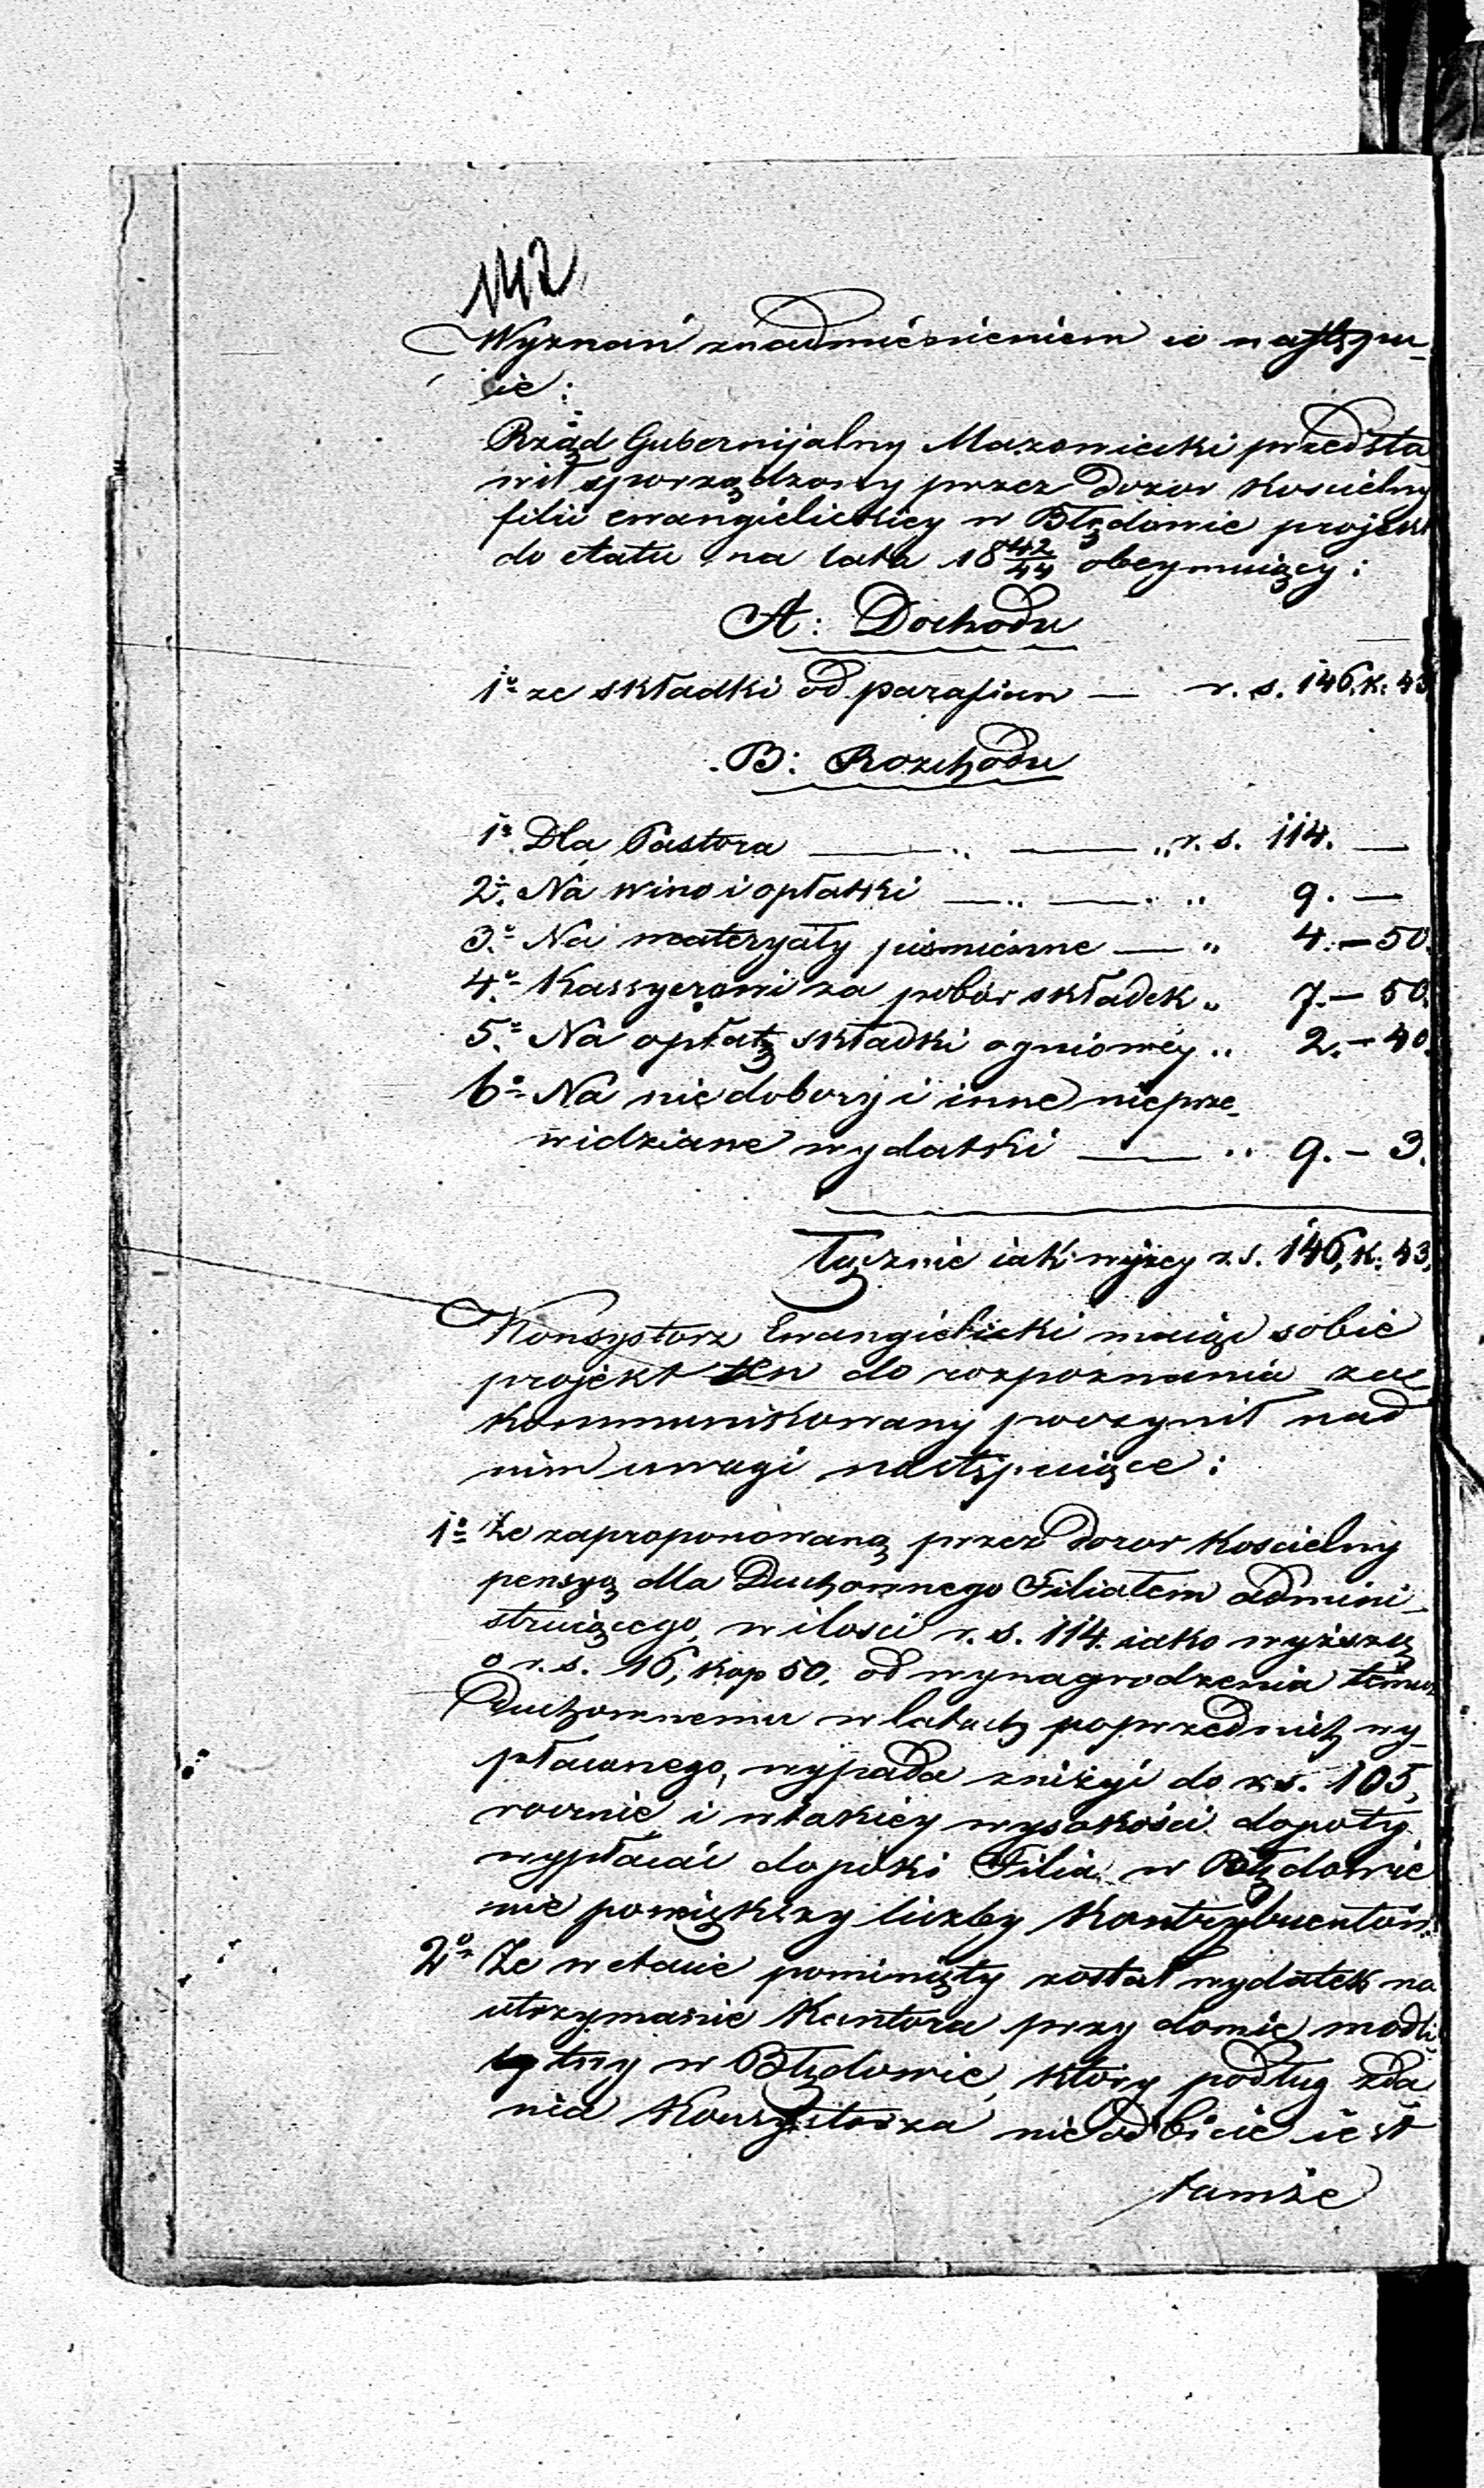 142
Wyznań z nadmienieniem co następu-
ie:
Rząd Gubernijalny Mazowiecki przedsta
wił sporządzony przez Dozor Kościelny
filii ewangielickiey w Błędowie projekt
do etatu na lata 18 42/44 obeymuiący:
A: Dochodu
1o ze składki od parafian — r. s. 146. k. 43
B: Rozchodu
1o Dla Pastora — „ — „ r. s. 114. —
2o Na wino i opłatki — „ — „ 9. —
3o Na materyały piśmienne — „ 4. — 50.
4o Kassyerowi za pobór składek „ 7. — 50.
5o Na opłatę składki ogniowéy „ 2. — 40.
6o Na niedobory i inne nieprze-
widziane wydatki — „ 9. — 3.
Łącznie iak wyżey r. s. 146, k. 43,
Konsystorz Ewangielicki maiąc sobie
projekt ten do rozpoznania za
kommunikowany poczynił nad
nim uwagi następuiące:
1o Że zaproponowaną przez Dozor Kościelny
pensyą dla Duchownego Filiałem admini-
struiącego, w ilości r. s. 114. iako wyższą
o r. s. 16, kop 50. od wynagrodzenia temuż
Duchownemu w latach poprzednich wy-
płacanego, wypada zniżyć do r. s. 105,
rocznie i w takiéy wysokości dopoty
wypłacać dopóki Filia w Błędowie
nie powiększy liczby Kontrybuentów.
2o Że w etacie pominięty został wydatek na
utrzymanie Kantora przy domie modli
twy w Błędowie, który podług zda
nia Konsystorza nieodbicie iest
tamże